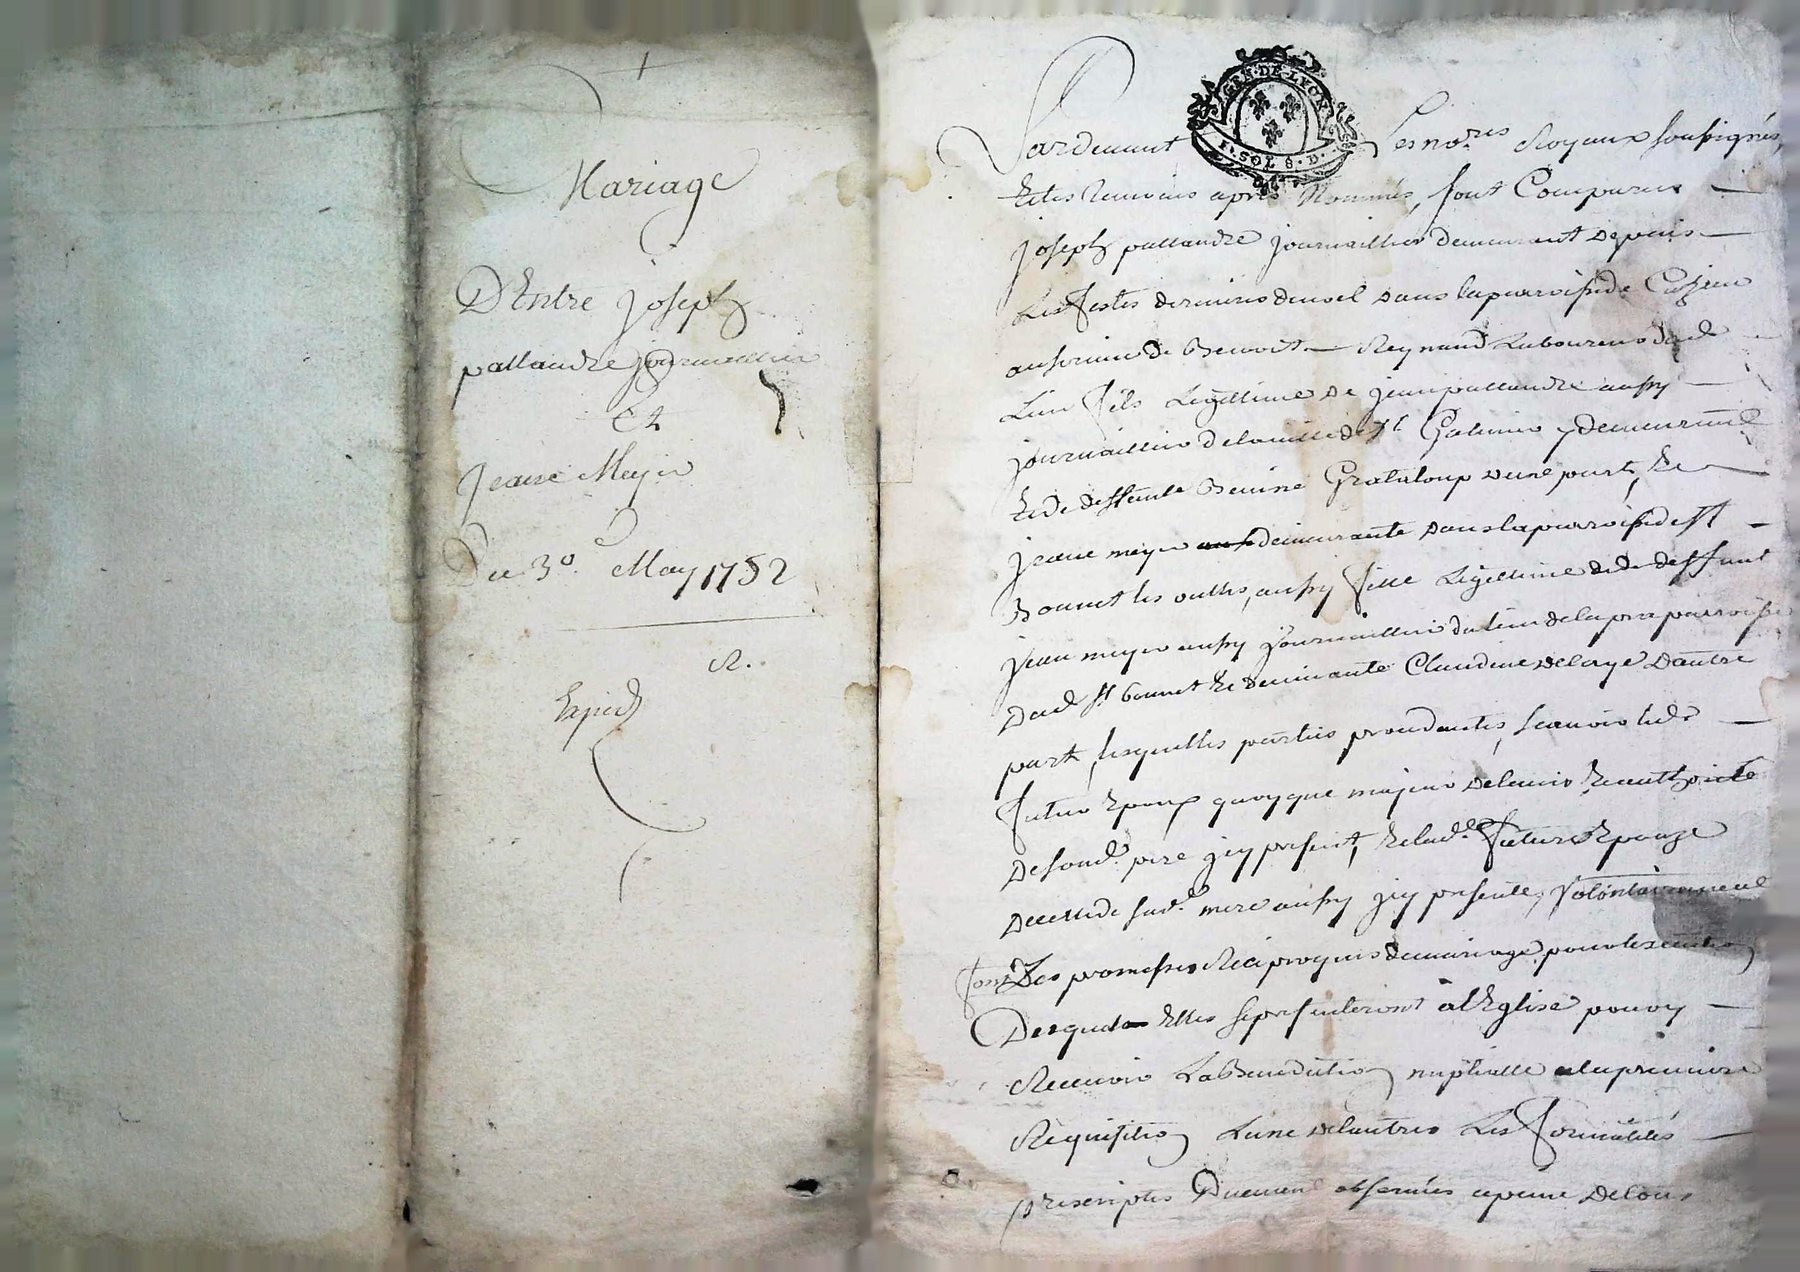 Mariage
D'Entre joseph
pallandre journallier
Et
Jeane Meyer
Du 3e. May 1752
R.
Expied
GEN. DE LYON
1. SOL 8. D.
Pardevant Les no.res Royaux soussignés,
Et les temoins apres Nommés, sont Comparus
joseph pallandre journallier demeurant depuis
Les festes dernieres denoel dans laparroisse de Cuzieu
au service de Benoist Reynaud Laboureur dud.
Lieu fils Legittime de jean pallandre aussy
journallier delaville de St. Galmier y demeurant
Et de deffunte Benine Grataloup dune part, Et
jeane meyer demeurante dans laparroisse de St
Bonnet les oulles, aussy fille Legittime de deffunt
jean meyer aussy journallier de laparroisse
dud. St bonnet Et de vivante Claudine delaye Dautre
part, lesquelles parties procedantes, scavoir led.
futur Epoux quoyque majeur de lavis Et authorité
De sond. pere jcy present, Et lad. future Epouze
De celle de sad. mere aussy jcy presente, volontairement
font Des promesses Reciproques de mariage pour lexecution
Desquels Elles se presenteront à l'Eglise pour y
Recevoir La Benediction nuptialle a la premiere
Requisition Lune de lautre Les formalités
prescriptes Duement observées a peine de tous